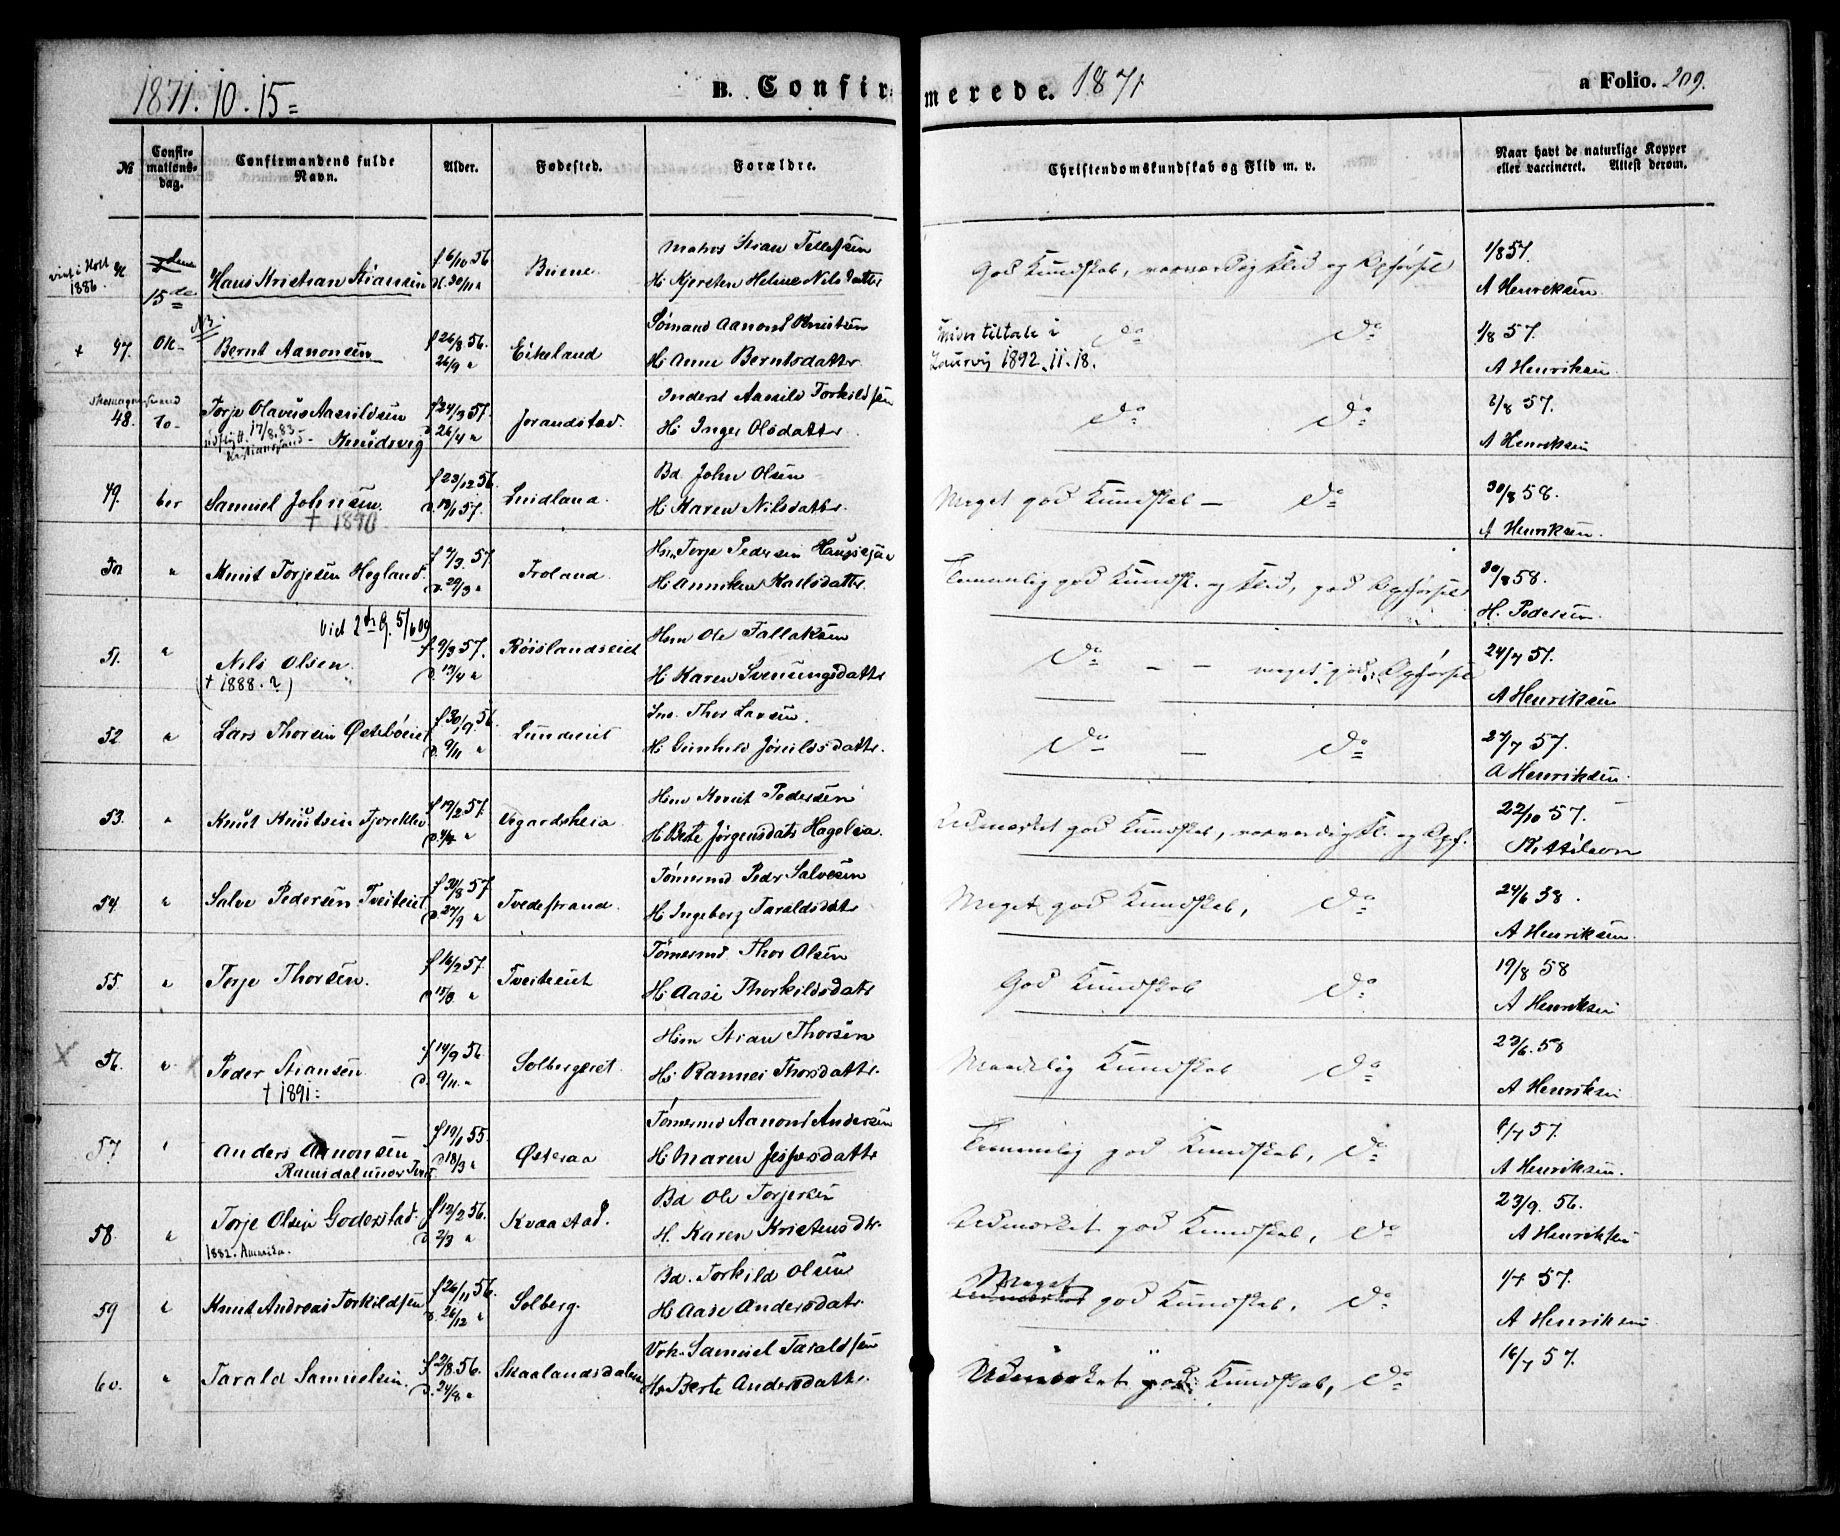 1871. 10. 15 =
B. Confirmerede. 1871
a Folio. 209.
№
Confirmations-dag.
Confirmandens fulde Navn.
Alder.
Fødested.
Forældre.
Christendomskundskab og Flid m. v.
Naar havt de naturlige Kopper eller vaccineret. Attest derom.
viet i Holt 1886.
15de Hans Kristian Stiansen f 6/10 56. d. 30/11 " Matros Stian Tellefsen
H. Kjersten Helene Nilsdatter God Kundskab, rosværdig Flid og Opførsel 1/8 57.
A Henriksen
NB.
+ 47. Ok- Bernt Aanonsen f 26/8 56. 26/9 " Eikeland Sømand Aanond Knutsen
H. Anne Berntsdatter
under tiltale i Laurvig 1892. 11. 18. do do 1/8 57.
A Henriksen
48. To- Torje Olavus Aasuldsen f 24/3 57. d. 26/4 " Jorandstad. Inderst Torkildsen
udflytt. 17/8. 83 Kristianssand - Knudsvig H. Inger Olsdatter do do 2/8 57.
A Henriksen
49. ber Samuel Johnsen f 23/12 56. d. 18/1 57. Lindland. Bd. John Olsen
† 1890 H. Karen Nilsdatter. Meget god Kundskab - do 30/8 58.
A Henriksen.
50 " Knut Torjesen Hegland. f 2/3. 57. d. 29/3 " Froland. Hm Torje Pedersen
H. Anniken Karlsdatter. Temmelig god Kundsk. og Flid, god Opførsel 30/8 58.
H. Pedersen
Viet 2den G. 5/6 09
51. " Nils Olsen. f 9/3 57. d. 13/4 " Røislandseiet Hm Ole Fallaksen
(† 1888. ?) H. Karen Svenungsdatter do - - meget god Opførsel 24/7 57.
A Henriksen
52 " Lars Thorsen Østebøeiet f 30/9. 56. d. 9/11 " Lundeeiet Ins. Thor Larsen.
H Gunhild do - do 27/7 57.
A Henriksen.
53. " Knut Knutsen f 19/2 57. Vegardsheia. Hm Knut Pedersen
H. Berte Jørgensdatr Hagelia. Udmærket god Kundskab, rosværdig Fl. og Opf. 22/10 57.
Kittilsen
54. " Salve Pedersen Tveiteiet f 30/8 57. d. 27/9 " Tvedestrand. Tømermd Peder Salvesen
H Ingeborg Taraldsdatr Meget god Kundskab, do 24/6 58.
A Henriksen.
55. " Terje Thorsen. f 16/2 57. d. 15/3 " Tveiteiet Tømermd Thor Olsen
H. Aase Thorkildsdatr God Kundskab do 19/8 58
A Henriksen
X 56. " X Peder Stiansen. f 14/9 56 d. 9/11. " Solbergeiet. Hm Stian Thorsen
† 1891 = H. Rannei Thorsdatter. Maadelig Kundskab do 23/6. 58
A Henriksen
57. " Anders Aanonsen f 19/1 55. d. 18/3 " Østeraa Tømermd Aanond Andersen
Ramsdal under H. Maren Jespersdatter Temmelig god Kundskab, do 9/7 57.
A Henriksen.
58. " Torje Olsen Goderstad. f 13/2 56. d. 2/3 " Kvaastad. Bd Ole Torjersen
1882. Amerika. H. Karen Kristensdtr. Udmærket god Kundskab, do 23/9. 56.
A Henriksen
59 " Knut Andreas Torkildsen f 26/11 56. d. 26/12 " Solberg. Bd. Torkild Olsen
H Aase Andersdatr. Meget god Kundskab, do 1/7 57.
A Henriksen
60. " Tarald Samuelsen. f 2/8 56. d. 24/8 " Skaalandsdalen Samuel Taraldsen
H. Berte Andersdatter. Udmærket god Kundskab, do 16/7 57.